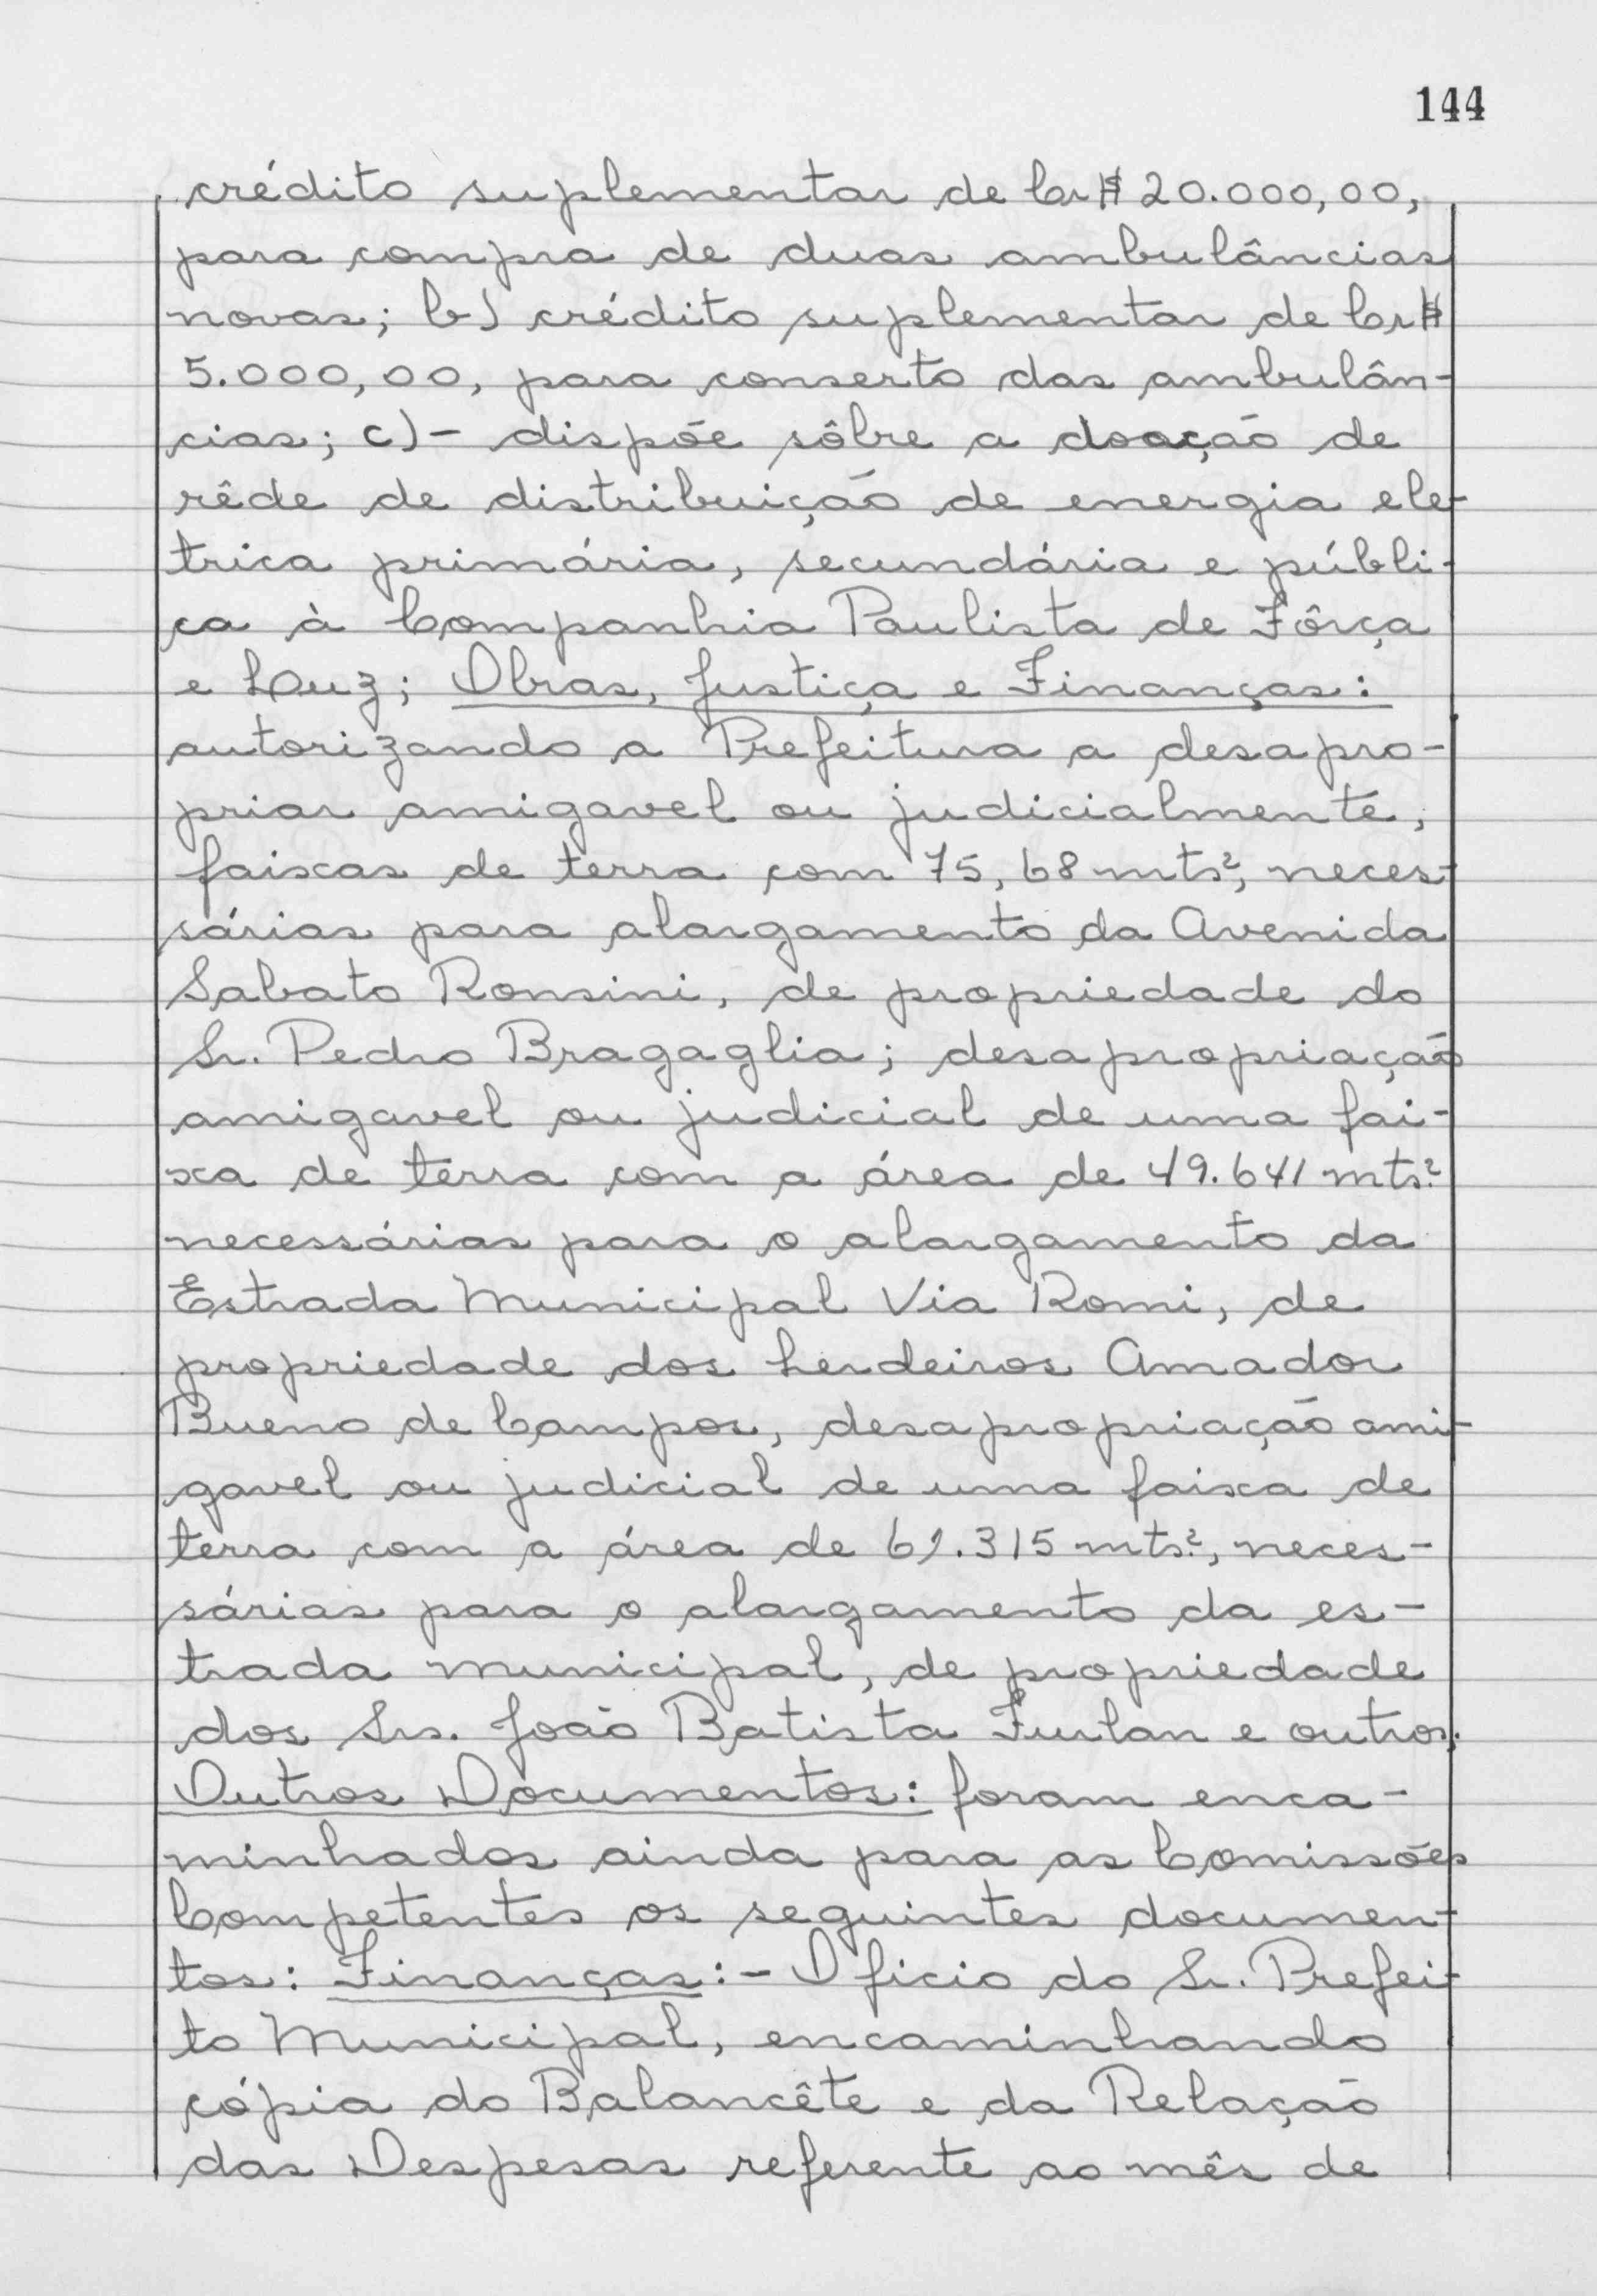 144
crédito suplementar de Cr$ 20.000,00,
para compra de duas ambulâncias
novas; b) crédito suplementar de Cr$
5.000,00, para conserto das ambulân-
cias; c)- dispõe sôbre a doação de
rêde de distribuição de energia ele-
trica primária, secundária e públi-
ca à Companhia Paulista de Fôrça
e Luz; Obras, Justiça e Finanças:
autorizando a Prefeitura a desapro-
priar amigavel ou judicialmente,
faixas de terra com 75,68 mts², neces-
sárias para alargamento da Avenida
Sabato Ronsini, de propriedade do
Sr. Pedro Bragaglia; desapropriação
amigavel ou judicial de uma fai-
xa de terra com a área de 49.641 mts²
necessárias para o alargamento da
Estrada Municipal Via Romi, de
propriedade dos herdeiros Amador
Bueno de Campos, desapropriação ami-
gavel ou judicial de uma faixa de
terra com a área de 61.315 mts², neces-
sárias para o alargamento da es-
trada municipal, de propriedade
dos Srs. João Batista Furlan e outros.
Outros Documentos: foram enca-
minhados ainda para as Comissões
Competentes os seguintes documen-
tos: Finanças:- Oficio do Sr. Prefei-
to Municipal, encaminhando
cópia do Balancête e da Relação
das Despesas referente ao mês de